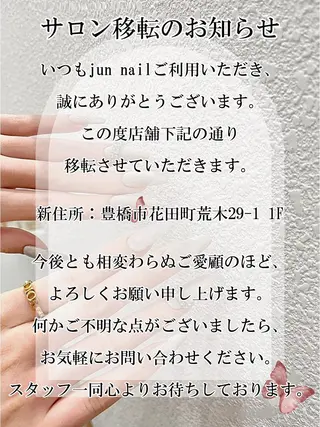 サロン移転のお知らせ
いつもjun nailご利用いただき、
誠にありがとうございます。
この度店舗下記の通り
移転させていただきます。
新住所：豊橋市花田町荒木29-1 1F
今後とも相変わらぬご愛顧のほど、
よろしくお願い申し上げます。
何かご不明な点がございましたら、
お気軽にお問い合わせください。
スタッフ一同心よりお待ちしております。